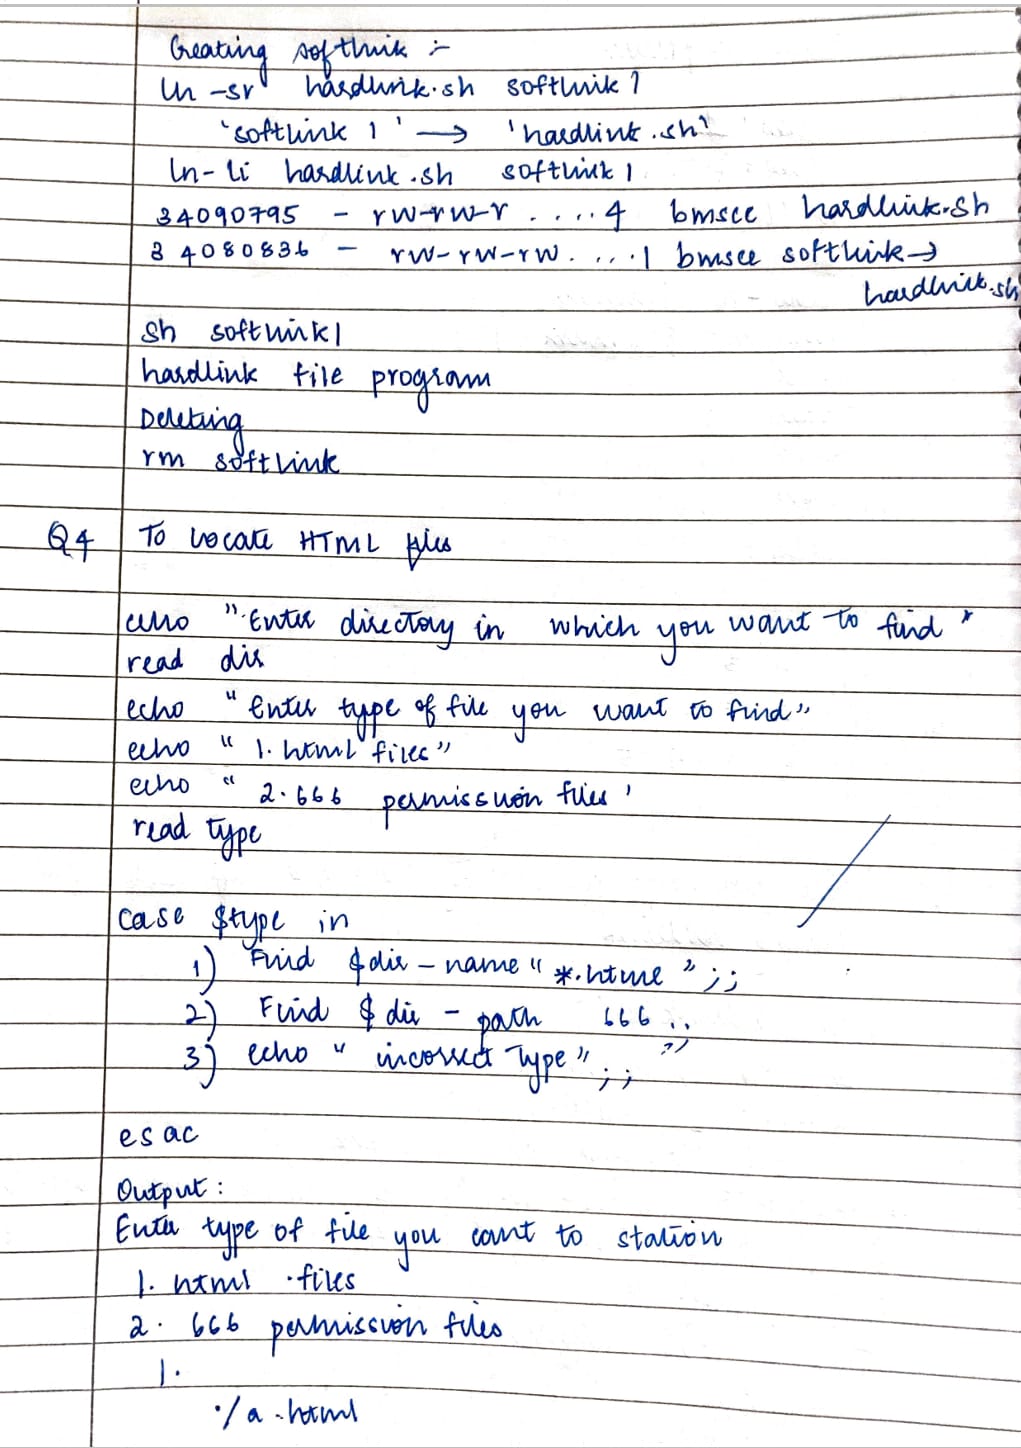 Creating softlink :-
ln -sr hardlink.sh softlink 1
'softlink 1' → 'hardlink.sh'
ln-li hardlink.sh softlink 1
34090795 - rw-rw-r ....4 bmsce hardlink.sh
34080836 - rw-rw-rw. ...1 bmsce softlink →
hardlink.sh
sh softlink1
hardlink file program
Deleting
rm softlink
Q4 To Locate HTML files
echo "Enter directory in which you want to find"
read dir
echo "Enter type of file you want to find"
echo "1. html files"
echo "2. 666 permission files'
read type
case $type in
1) Find $dir - name "*.html";;
2) Find $dir - path 666 ;;
3) echo "incorrect Type";;
esac
Output:
Enter type of file you want to station
1. html .files
2. 666 permission files
1.
./a.html